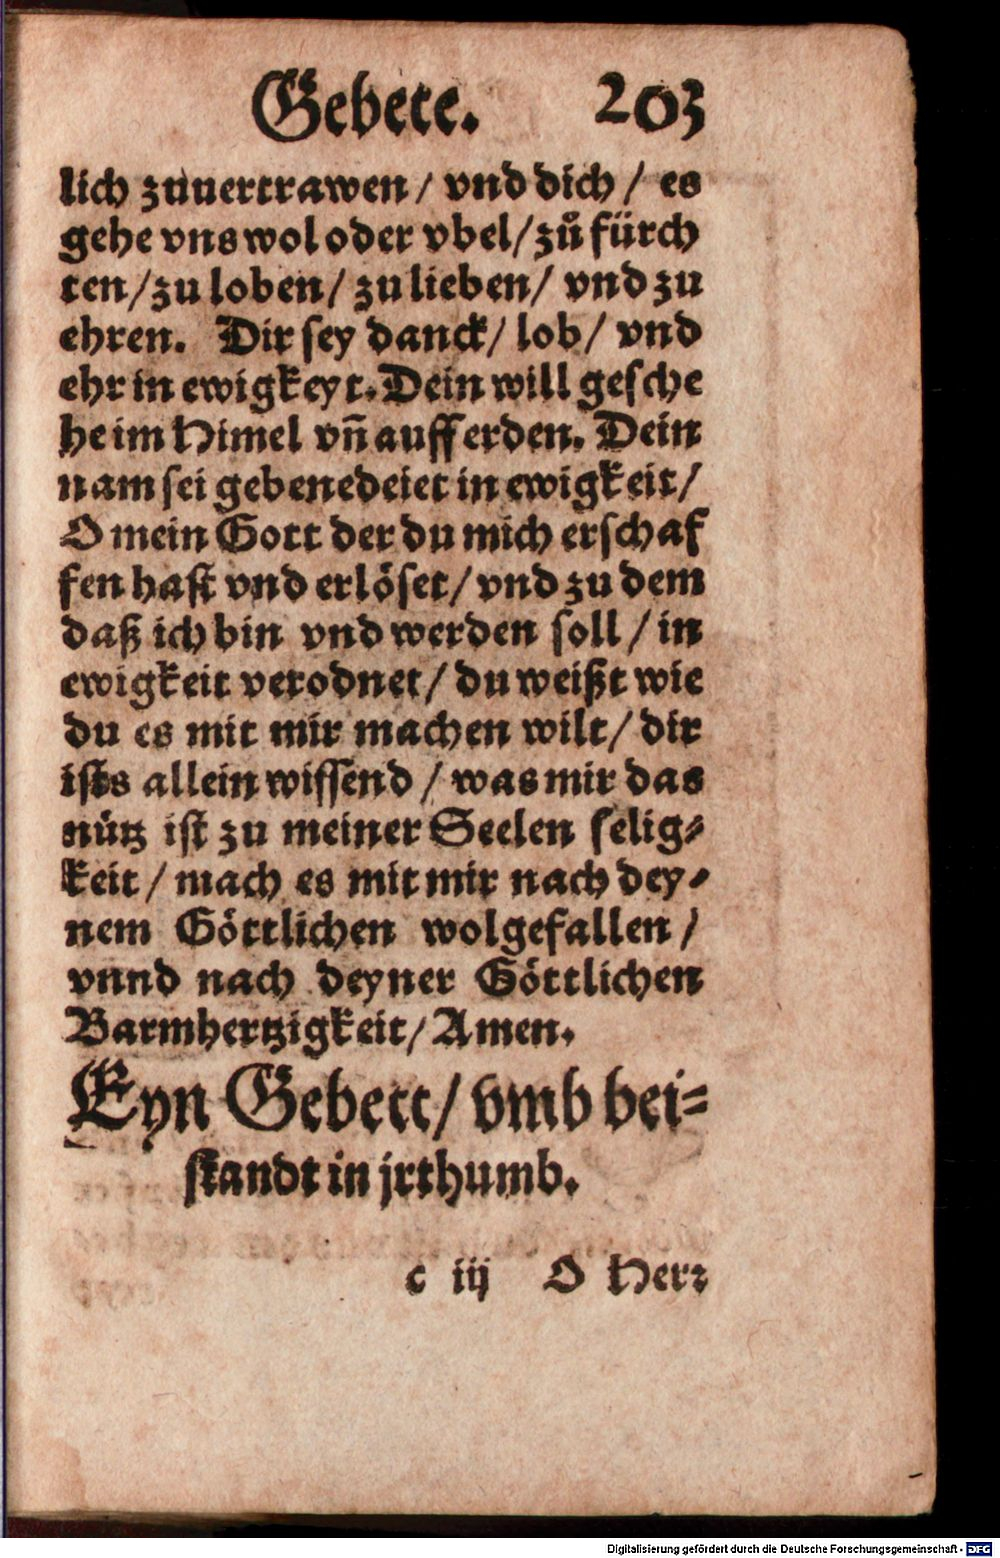 Gebete. 203
lich zuuertrawen / vnd dich / es
gehe vns wol oder vbel / zů fürch
ten / zu loben / zu lieben / vnd zu
ehren. Dir sey danck / lob / vnd
ehr in ewigkeyt. Dein will gesche
he im Himel vñ auff erden. Dein
nam sei gebenedeiet in ewigkeit /
O mein Gott der du mich erschaf
fen hast vnd erlöset / vnd zu dem
daß ich bin vnd werden soll / in
ewigkeit verodnet / du weißt wie
du es mit mir machen wilt / dir
ists allein wissend / was mir das
nütz ist zu meiner Seelen selig-
keit / mach es mit mir nach dey-
nem Göttlichen wolgefallen /
vnnd nach deyner Göttlichen
Barmhertzigkeit / Amen.
Eyn Gebett / vmb bei-
standt in jrthumb.
c iij O Herr
Digitalisierung gefördert durch die Deutsche Forschungsgemeinschaft - DFG